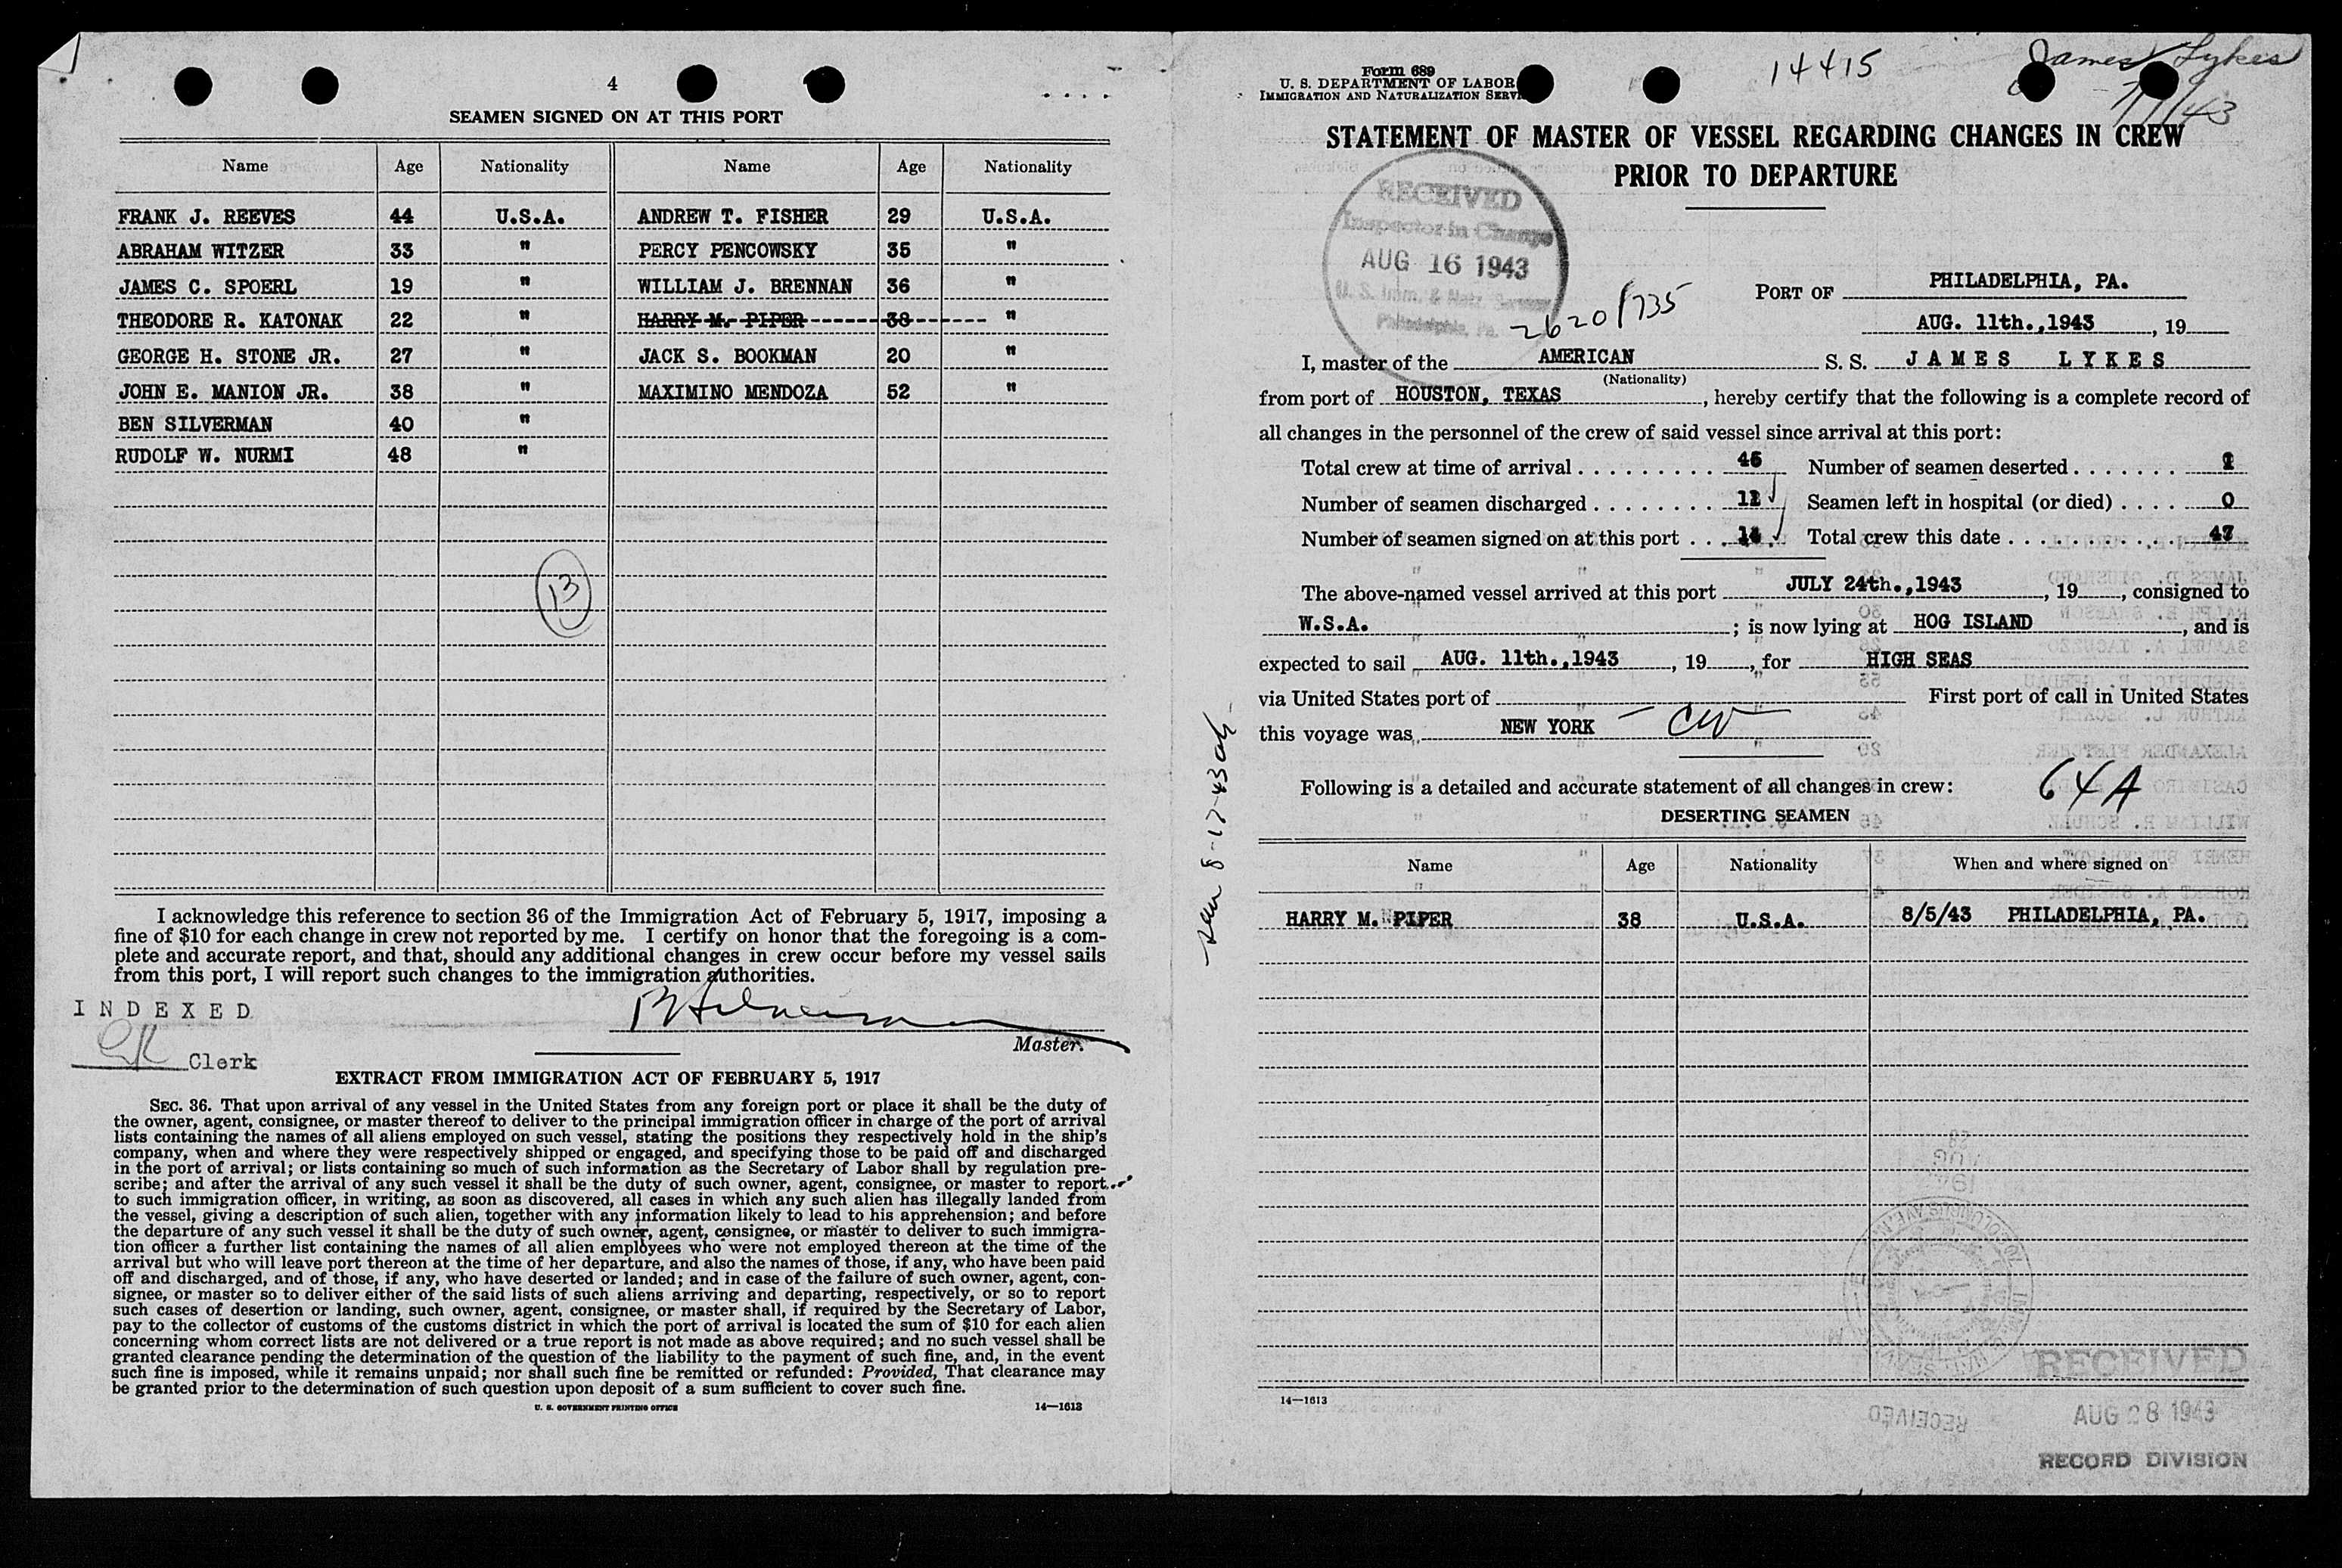 4
SEAMEN SIGNED ON AT THIS PORT
Name Age Nationality Name Age Nationality
FRANK J. REEVES 44 U.S.A. ANDREW T. FISHER 29 U.S.A.
ABRAHAM WITZER 33 " PERCY PENCOWSKY 35 "
JAMES C. SPOERL 19 " WILLIAM J. BRENNAN 36 "
THEODORE R. KATONAK 22 " HARRY M. PIPER 38 "
GEORGE H. STONE JR. 27 " JACK S. BOOKMAN 20 "
JOHN E. MANION JR. 38 " MAXIMINO MENDOZA 52 "
BEN SILVERMAN 40 "
RUDOLF W. NURMI 48 "
13
I acknowledge this reference to section 36 of the Immigration Act of February 5, 1917, imposing a
fine of $10 for each change in crew not reported by me. I certify on honor that the foregoing is a com-
plete and accurate report, and that, should any additional changes in crew occur before my vessel sails
from this port, I will report such changes to the immigration authorities.
INDEXED
Clerk
Master.
EXTRACT FROM IMMIGRATION ACT OF FEBRUARY 5, 1917
SEC. 36. That upon arrival of any vessel in the United States from any foreign port or place it shall be the duty of
the owner, agent, consignee, or master thereof to deliver to the principal immigration officer in charge of the port of arrival
lists containing the names of all aliens employed on such vessel, stating the positions they respectively hold in the ship's
company, when and where they were respectively shipped or engaged, and specifying those to be paid off and discharged
in the port of arrival; or lists containing so much of such information as the Secretary of Labor shall by regulation pre-
scribe; and after the arrival of any such vessel it shall be the duty of such owner, agent, consignee, or master to report
to such immigration officer, in writing, as soon as discovered, all cases in which any such alien has illegally landed from
the vessel, giving a description of such alien, together with any information likely to lead to his apprehension; and before
the departure of any such vessel it shall be the duty of such owner, agent, consignee, or master to deliver to such immigra-
tion officer a further list containing the names of all alien employees who were not employed thereon at the time of the
arrival but who will leave port thereon at the time of her departure, and also the names of those, if any, who have been paid
off and discharged, and of those, if any, who have deserted or landed; and in case of the failure of such owner, agent, con-
signee, or master so to deliver either of the said lists of such aliens arriving and departing, respectively, or so to report
such cases of desertion or landing, such owner, agent, consignee, or master shall, if required by the Secretary of Labor,
pay to the collector of customs of the customs district in which the port of arrival is located the sum of $10 for each alien
concerning whom correct lists are not delivered or a true report is not made as above required; and no such vessel shall be
granted clearance pending the determination of the question of the liability to the payment of such fine, and, in the event
such fine is imposed, while it remains unpaid; nor shall such fine be remitted or refunded: Provided, That clearance may
be granted prior to the determination of such question upon deposit of a sum sufficient to cover such fine.
U. S. GOVERNMENT PRINTING OFFICE 14—1613
Form 689
U. S. DEPARTMENT OF LABOR
IMMIGRATION AND NATURALIZATION
14415
James Lykes
STATEMENT OF MASTER OF VESSEL REGARDING CHANGES IN CREW
PRIOR TO DEPARTURE
RECEIVED
Inspector in Charge
AUG 16 1943
U. S. Imm. & Natz. Service
Philadelphia, Pa.
2620/735
PORT OF PHILADELPHIA, PA.
AUG. 11th.,1943, 19
I, master of the AMERICAN S. S. JAMES LYKES
(Nationality)
from port of HOUSTON, TEXAS, hereby certify that the following is a complete record of
all changes in the personnel of the crew of said vessel since arrival at this port:
Total crew at time of arrival Number of seamen deserted
Number of seamen discharged Seamen left in hospital (or died) 0
Number of seamen signed on at this port Total crew this date
The above-named vessel arrived at this port JULY 24th.,1943, 19, consigned to
W.S.A.; is now lying at HOG ISLAND, and is
expected to sail AUG. 11th.,1943, 19, for HIGH SEAS
via United States port of First port of call in United States
this voyage was NEW YORK
Following is a detailed and accurate statement of all changes in crew:
64A
DESERTING SEAMEN
Name Age Nationality When and where signed on
HARRY M. PIPER 38 U.S.A. 8/5/43 PHILADELPHIA, PA.
14—1613
RECEIVED
AUG 28 1943
RECORD DIVISION